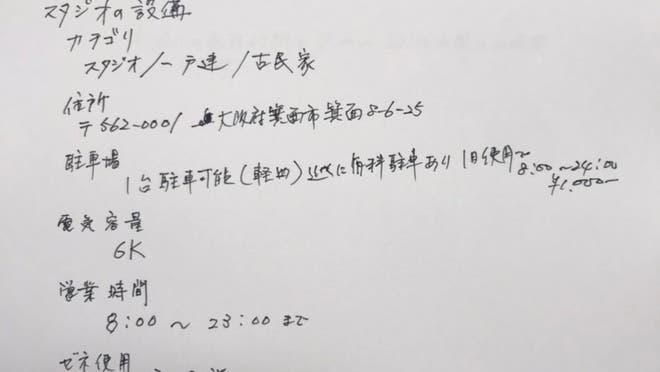 スタジオの設備
カテゴリ
スタジオ/一戸建/古民家
住所
〒562-0001 大阪府箕面市箕面8-6-25
駐車場
1台駐車可能(軽のみ)近くに有料駐車あり 1日使用で
8:00~24:00
¥1,000-
電気容量
6K
営業時間
8:00 ~ 23:00 まで
ゼネ使用